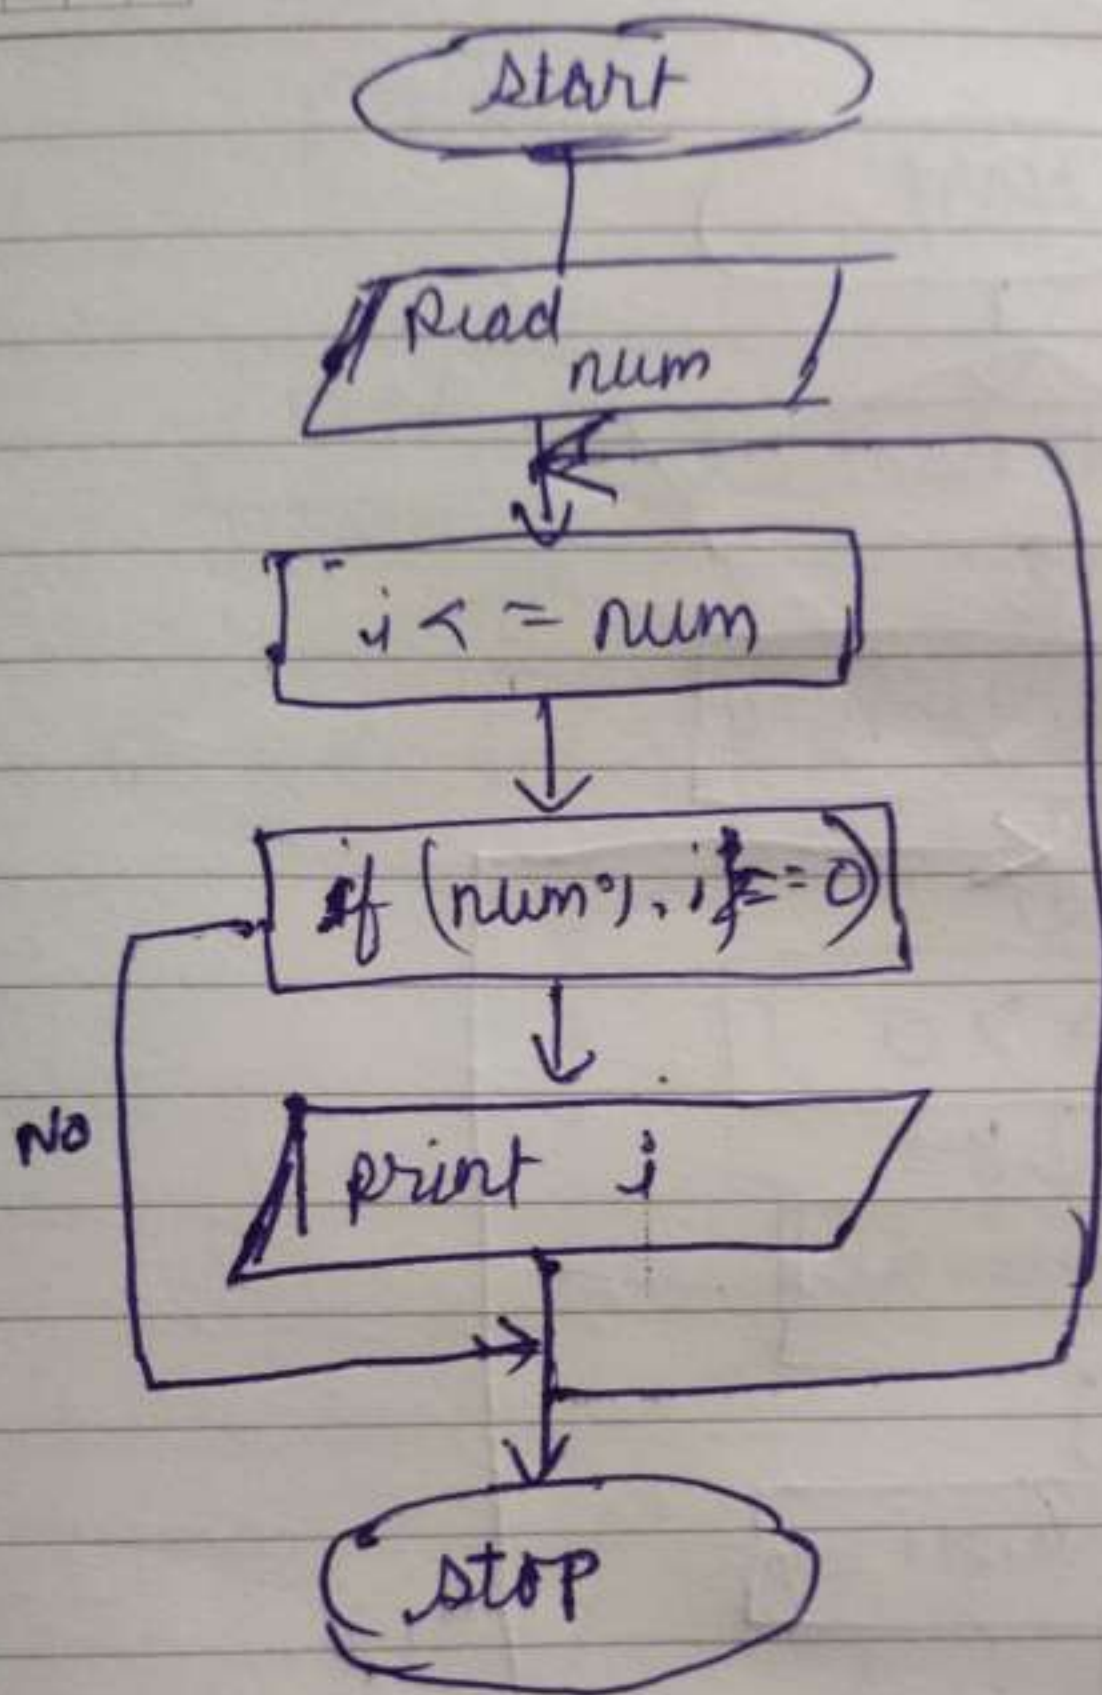 start
Read
num
i < = num
if (num % i == 0)
No
print i
stop